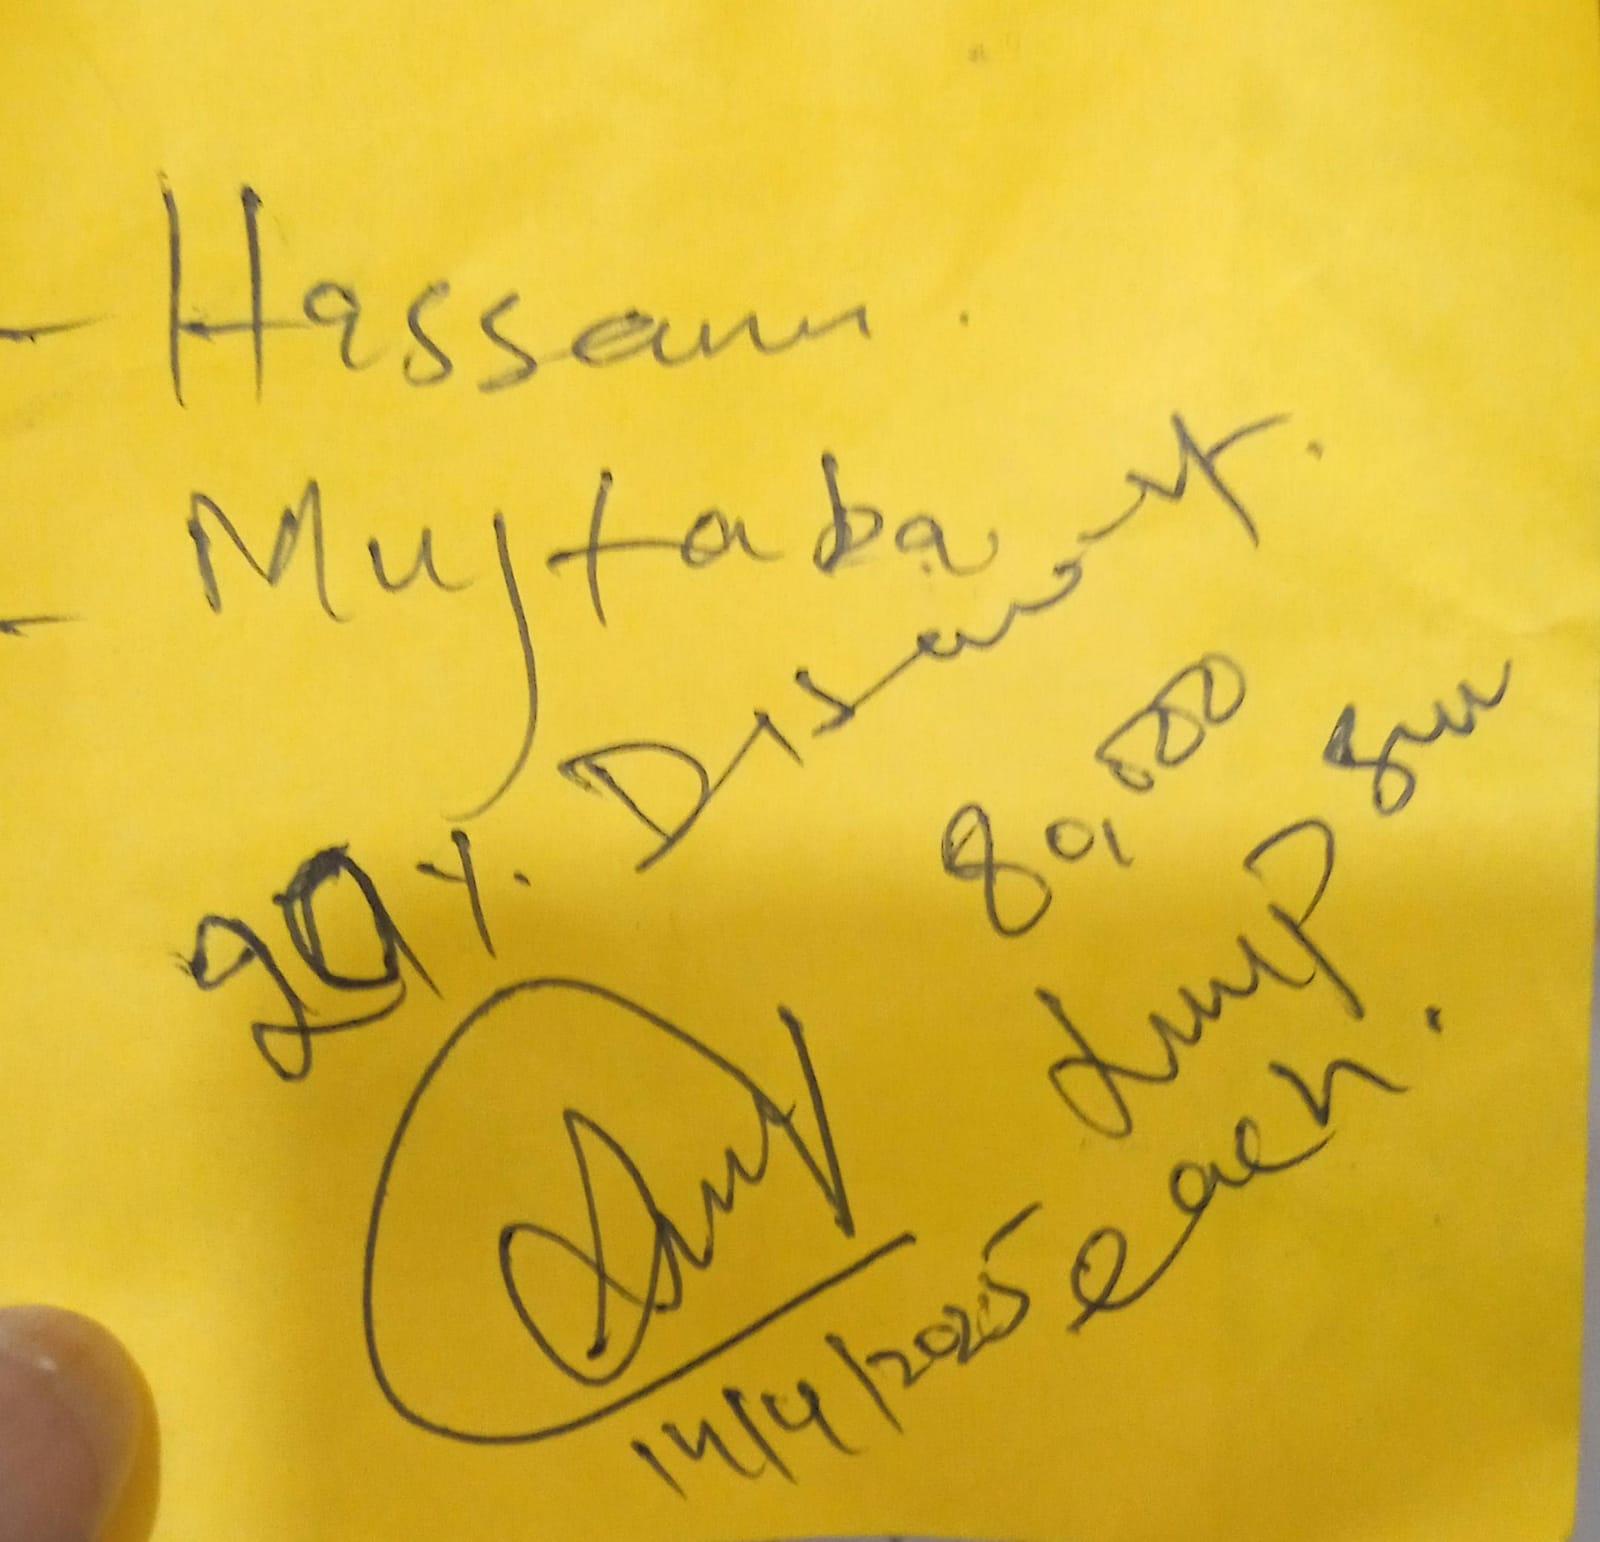 - Hassam.
- Mujtaba
20%. Discount.
80,000
Lump sum
each.
14/4/2025